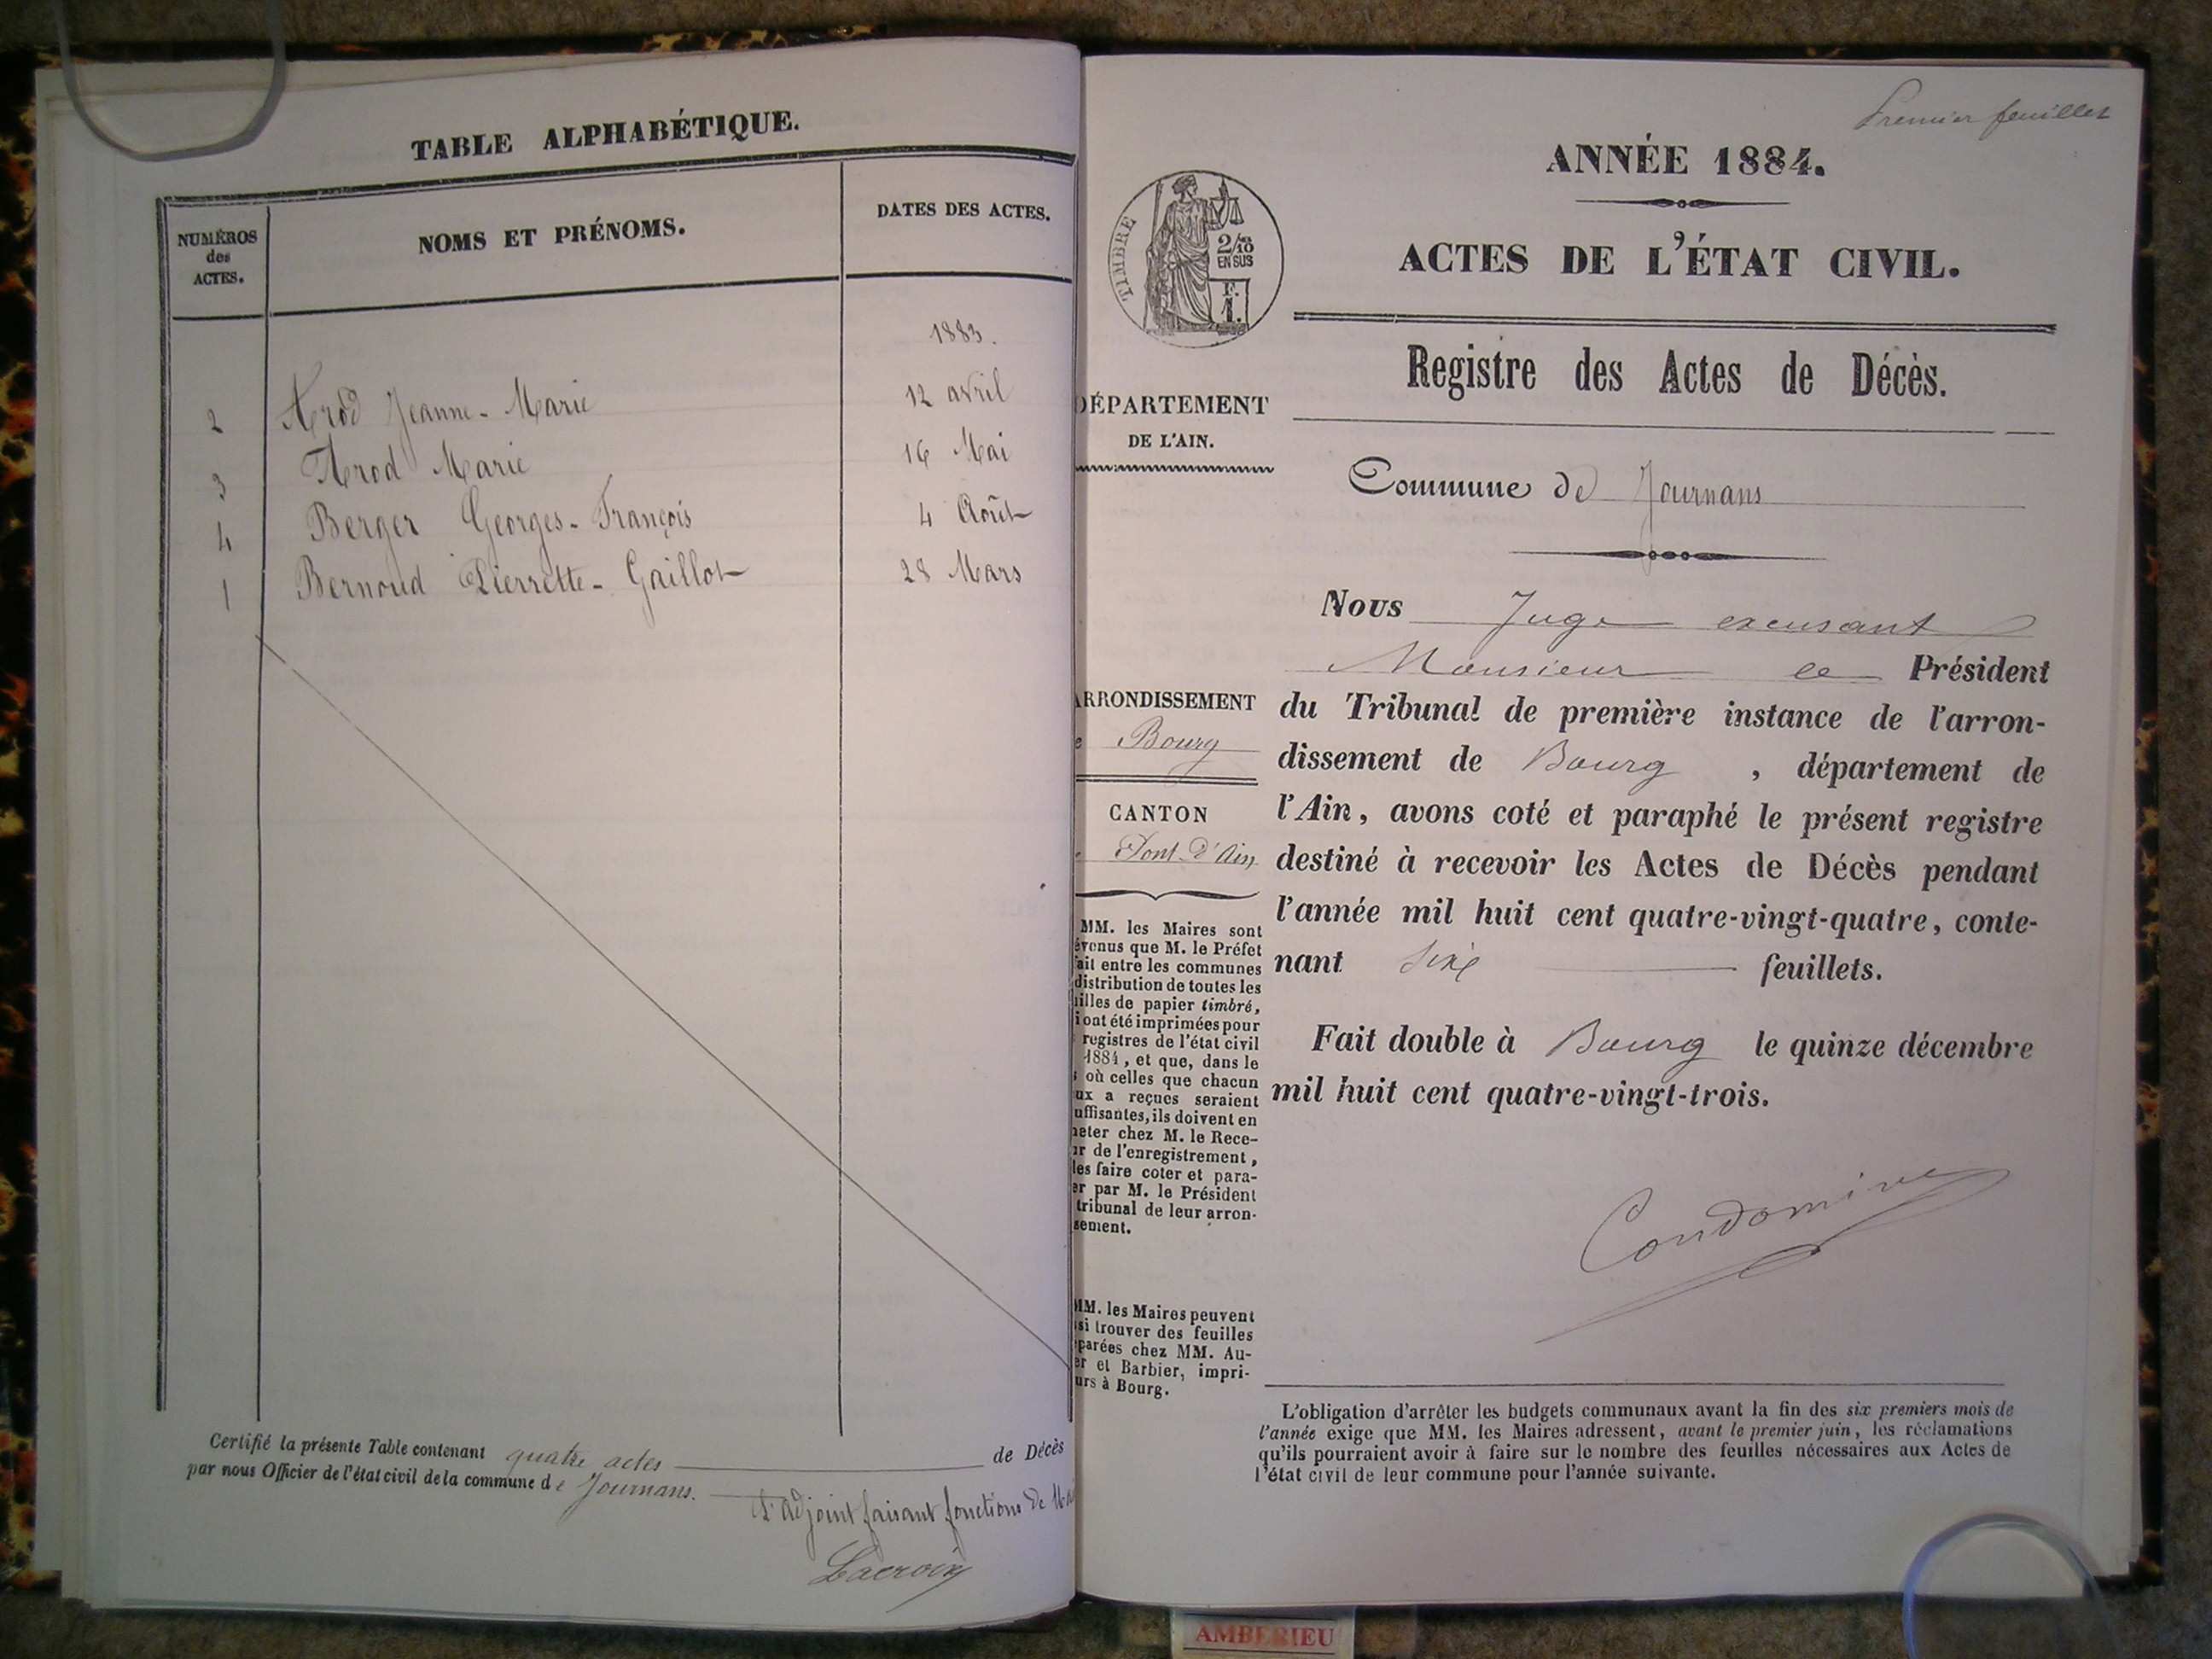 TABLE ALPHABÉTIQUE.
NUMÉROS des ACTES.
NOMS ET PRÉNOMS.
DATES DES ACTES.
1883.
2 Arod Jeanne-Marie 12 avril
3 Arod Marie 16 Mai
4 Berger Georges-François 4 Août
1 Bernoud Pierrette-Gaillot 28 Mars
Certifié la présente Table contenant quatre actes de Décès
par nous Officier de l'état civil de la commune de Journans.
L'adjoint faisant fonctions de
Lacroix
Premier feuillet
ANNÉE 1884.
ACTES DE L'ÉTAT CIVIL.
TIMBRE
2/10 EN SUS
F. 1.
Registre des Actes de Décès.
DÉPARTEMENT
DE L'AIN.
Commune de Journans
ARRONDISSEMENT
e Bourg
CANTON
Pont-d'Ain
MM. les Maires sont
évenus que M. le Préfet
ait entre les communes
distribution de toutes les
illes de papier timbré,
i ont été imprimées pour
registres de l'état civil
1884, et que, dans le
s où celles que chacun
ux a reçues seraient
uffisantes, ils doivent en
heter chez M. le Rece-
ur de l'enregistrement,
les faire coter et para-
er par M. le Président
tribunal de leur arron-
sement.
MM. les Maires peuvent
si trouver des feuilles
parées chez MM. Au-
er et Barbier, impri-
urs à Bourg.
Nous Juge excusant
Monsieur le Président
du Tribunal de première instance de l'arron-
dissement de Bourg, département de
l'Ain, avons coté et paraphé le présent registre
destiné à recevoir les Actes de Décès pendant
l'année mil huit cent quatre-vingt-quatre, conte-
nant six feuillets.
Fait double à Bourg le quinze décembre
mil huit cent quatre-vingt-trois.
Condomine
L'obligation d'arrêter les budgets communaux avant la fin des six premiers mois de
l'année exige que MM. les Maires adressent, avant le premier juin, les réclamations
qu'ils pourraient avoir à faire sur le nombre des feuilles nécessaires aux Actes de
l'état civil de leur commune pour l'année suivante.
AMBERIEU